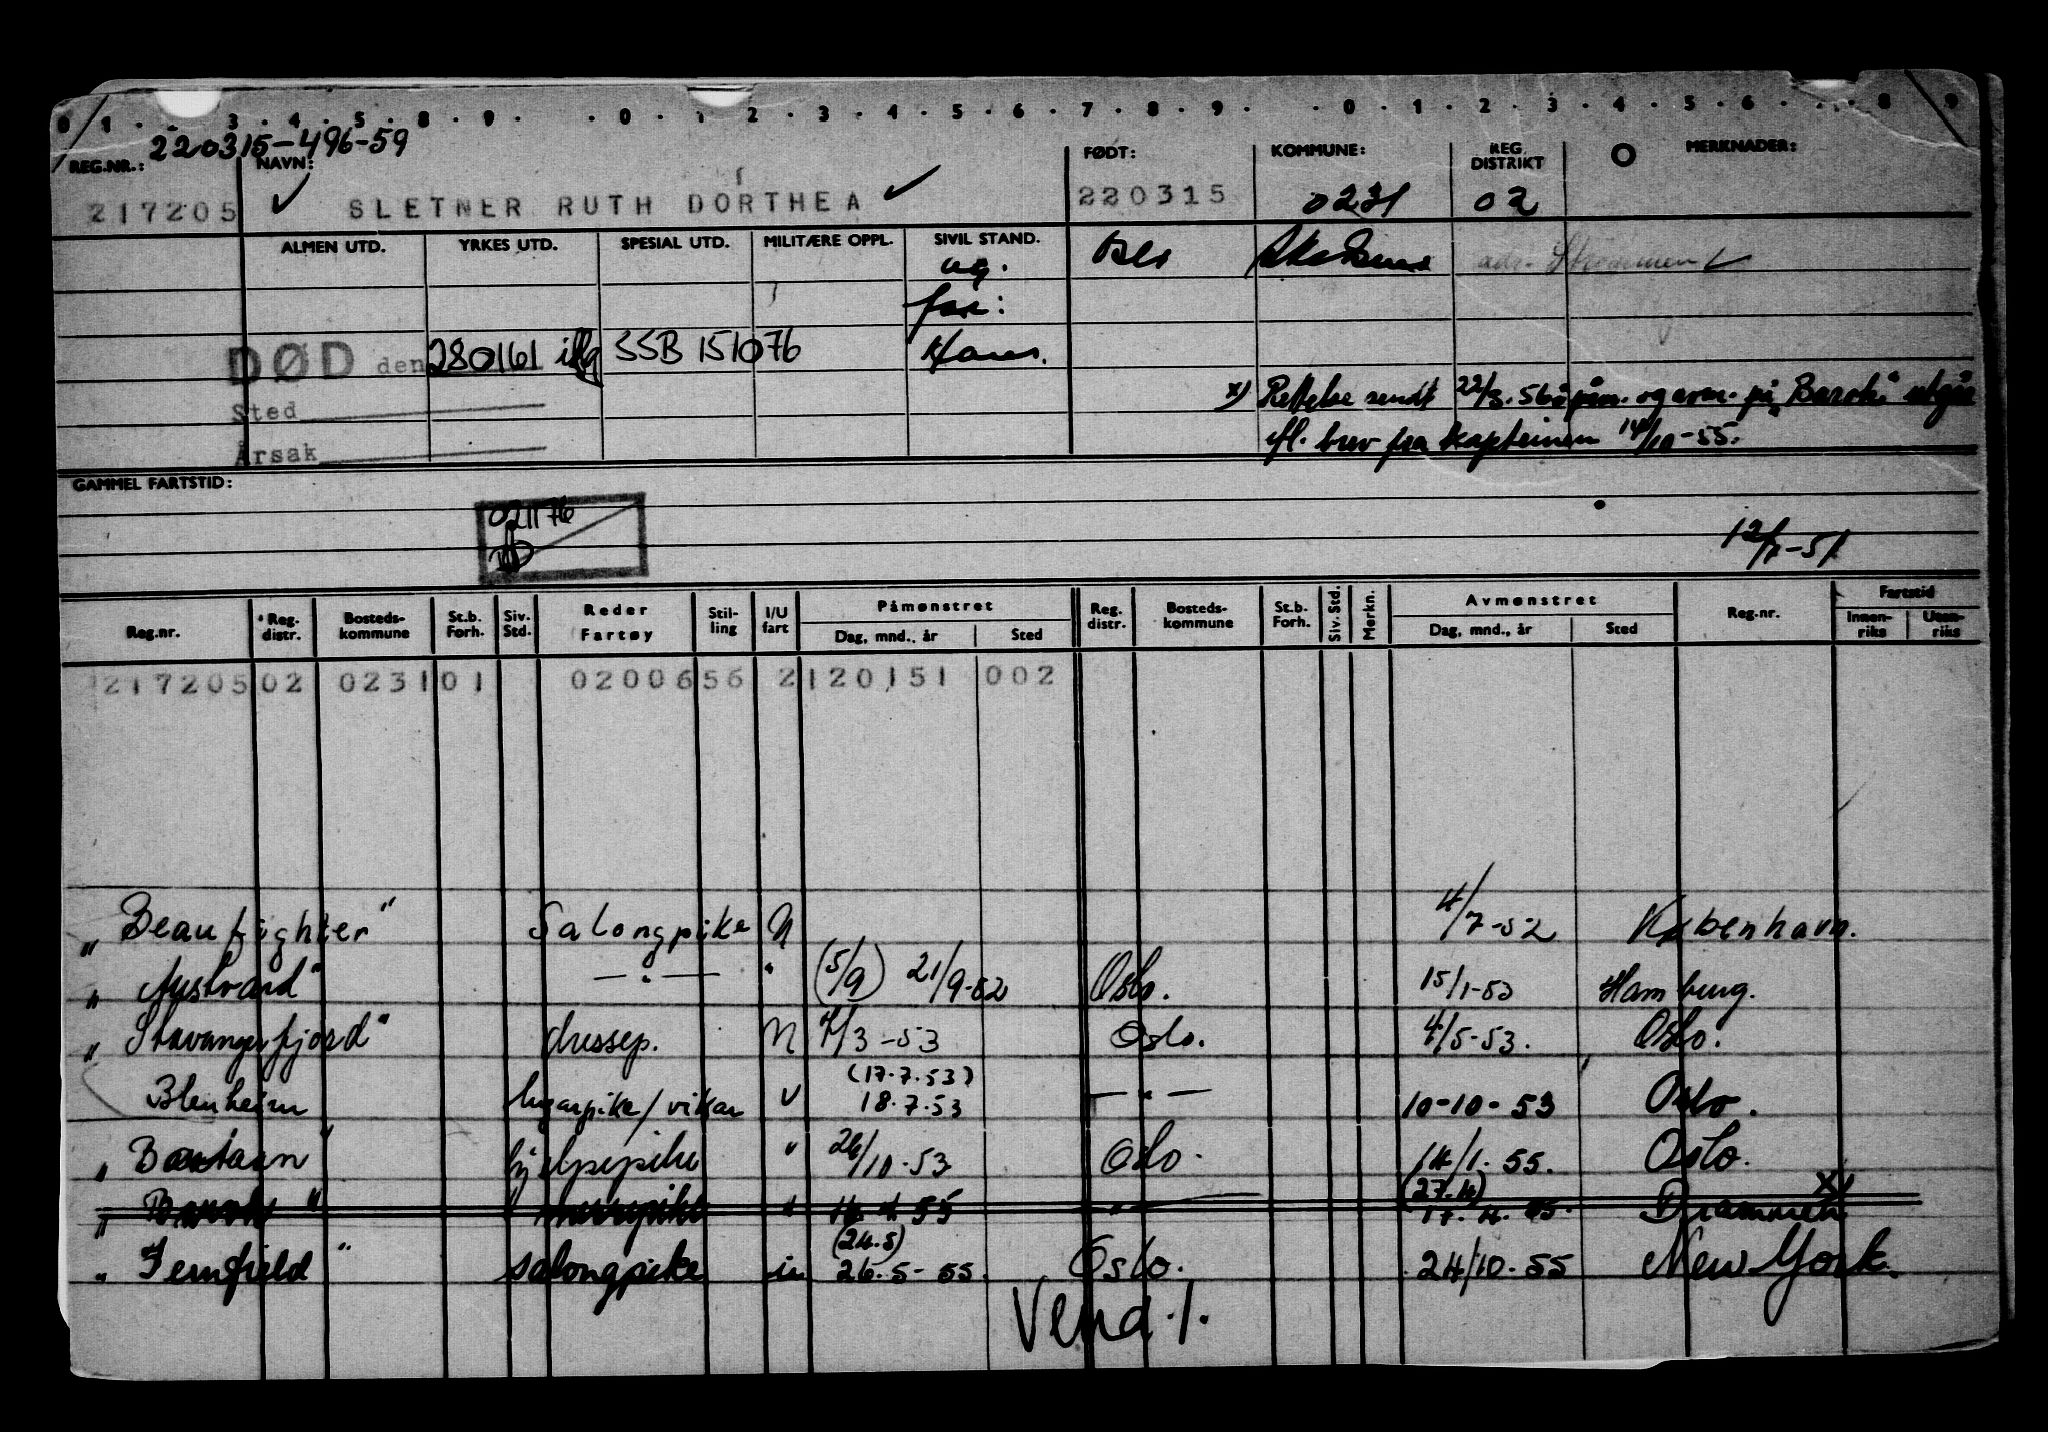 0 1 . . 3 . 4 . 5 . 8 . 9 . . 0 . 1 . 2 . 3 . 4 . 5 . 6 . 7 . 8 . 9 . . 0 . 1 . 2 . 3 . 4 . 5 . 6 . . 8 9
220315-496-59
REG.NR.: NAVN: FØDT: KOMMUNE: REG. DISTRIKT MERKNADER:
217205 SLETNER RUTH DORTHEA 220315 0231 02
ALMEN UTD. YRKES UTD. SPESIAL UTD. MILITÆRE OPPL. SIVIL STAND.
ug. Akershus adr. Strømmen
far:
DØD den 280161 SSB 151076 Hans.
x) Rettelse sendt 22/3.56 påm. og avm. på "Barok" utgår
Sted
fl. brev fra kapteinen 14/10-55.
Årsak
GAMMEL FARTSTID:
021176
12/1-51
Reg.nr. Reg. distr. Bosteds-kommune St.b. Forh. Siv. Std. Reder Fartøy Stil-ling I/U fart Påmønstret Dag, mnd., år Sted Reg. distr. Bosteds-kommune St.b. Forh. Siv. Std. Merkn. Avmønstret Dag, mnd., år Sted Reg.nr. Fartstid Innen-riks Uten-riks
217205 02 0231 01 02006 56 2 120151 002
"Beaufighter" Salongpike U 4/7-52 København.
"Austvard" — " — " (5/9) 21/9-52 Oslo. 15/1-53 Hamburg.
"Stavangerfjord" dressep. U 4/3-53 Oslo. 4/5-53. Oslo.
Blenheim lugarpike/vikar (17.7.53) 18.7.53 — " — 10-10-53 Oslo.
" hjelpepike " 26/10.53 Oslo. 14/1.55. Oslo.
" " " (27.4) 17.4.55. Drammen x)
"Fernfield" salongpike (24.5) 26.5-55. Oslo. 24/10.55 New York.
Vend ./.